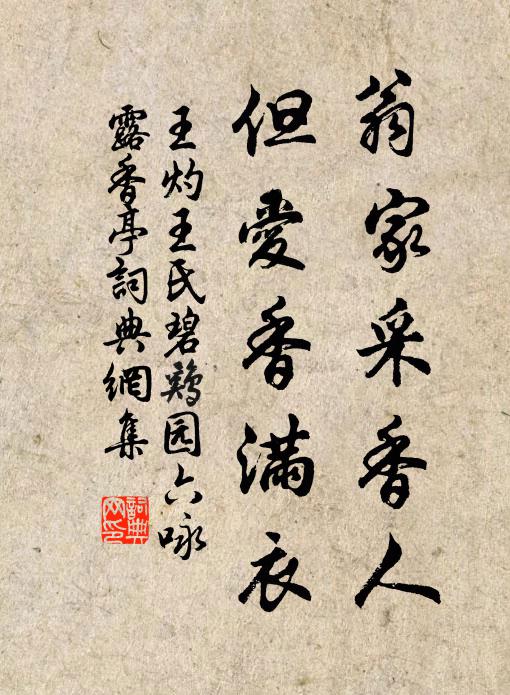 翁家采香人
但愛香滿衣
王灼王氏碧鷄园六咏
露香亭詞典網集
詞典
网印